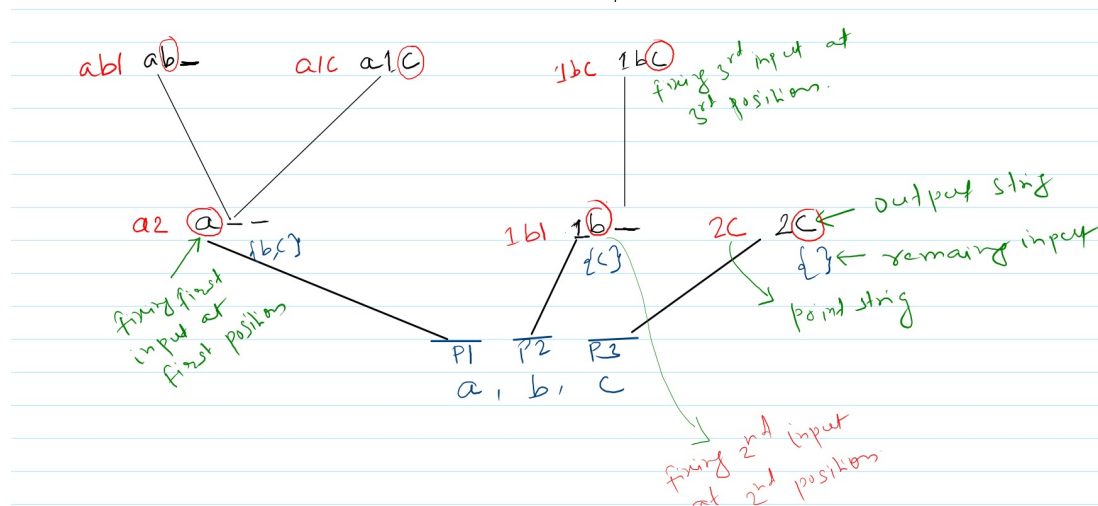 ab1 ab_
a1c a1c
1bc 1bc
fixing 3rd input at
3rd position.
a2 a _ _
{b,c}
1b1 1b_
{c}
2c 2c
← output strig
{ } ← remaing input
point strig
fixing first
input at
first position
P1 P2 P3
a, b, c
fixing 2nd input
at 2nd position